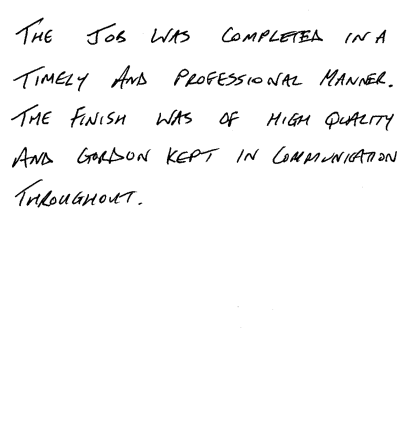 THE JOB WAS COMPLETED IN A
TIMELY AND PROFESSIONAL MANNER.
THE FINISH WAS OF HIGH QUALITY
AND GORDON KEPT IN COMMUNICATION
THROUGHOUT.